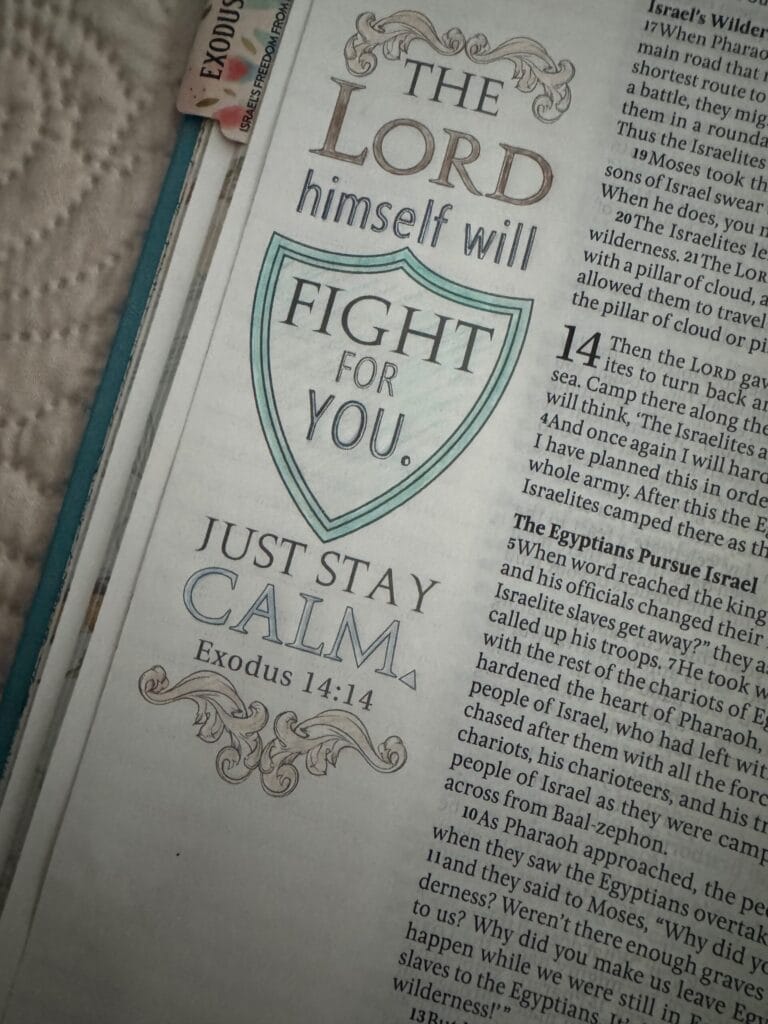 EXODUS
ISRAEL'S FREEDOM FROM
THE
LORD
himself will
FIGHT
FOR
YOU.
JUST STAY
CALM.
Exodus 14:14
Israel's Wilder
17When Pharao
main road that
shortest route to
a battle, they mig
them in a rounda
Thus the Israelites
19Moses took th
sons of Israel swear
When he does, you
20The Israelites le
wilderness. 21The LORD
with a pillar of cloud, a
allowed them to travel
the pillar of cloud or pi
14 Then the LORD gav
ites to turn back an
sea. Camp there along the
will think, 'The Israelites a
4And once again I will hard
I have planned this in orde
whole army. After this the Eg
Israelites camped there as th
The Egyptians Pursue Israel
5When word reached the king
and his officials changed their
Israelite slaves get away?" they as
called up his troops. 7He took w
with the rest of the chariots of Eg
hardened the heart of Pharaoh,
people of Israel, who had left wit
chased after them with all the forc
chariots, his charioteers, and his tr
people of Israel as they were camp
across from Baal-zephon.
10As Pharaoh approached, the peo
when they saw the Egyptians overtak
11and they said to Moses, "Why did yo
derness? Weren't there enough graves
to us? Why did you make us leave Egy
happen while we were still in E
slaves to the Egyptians. It's
wilderness!'"
13But